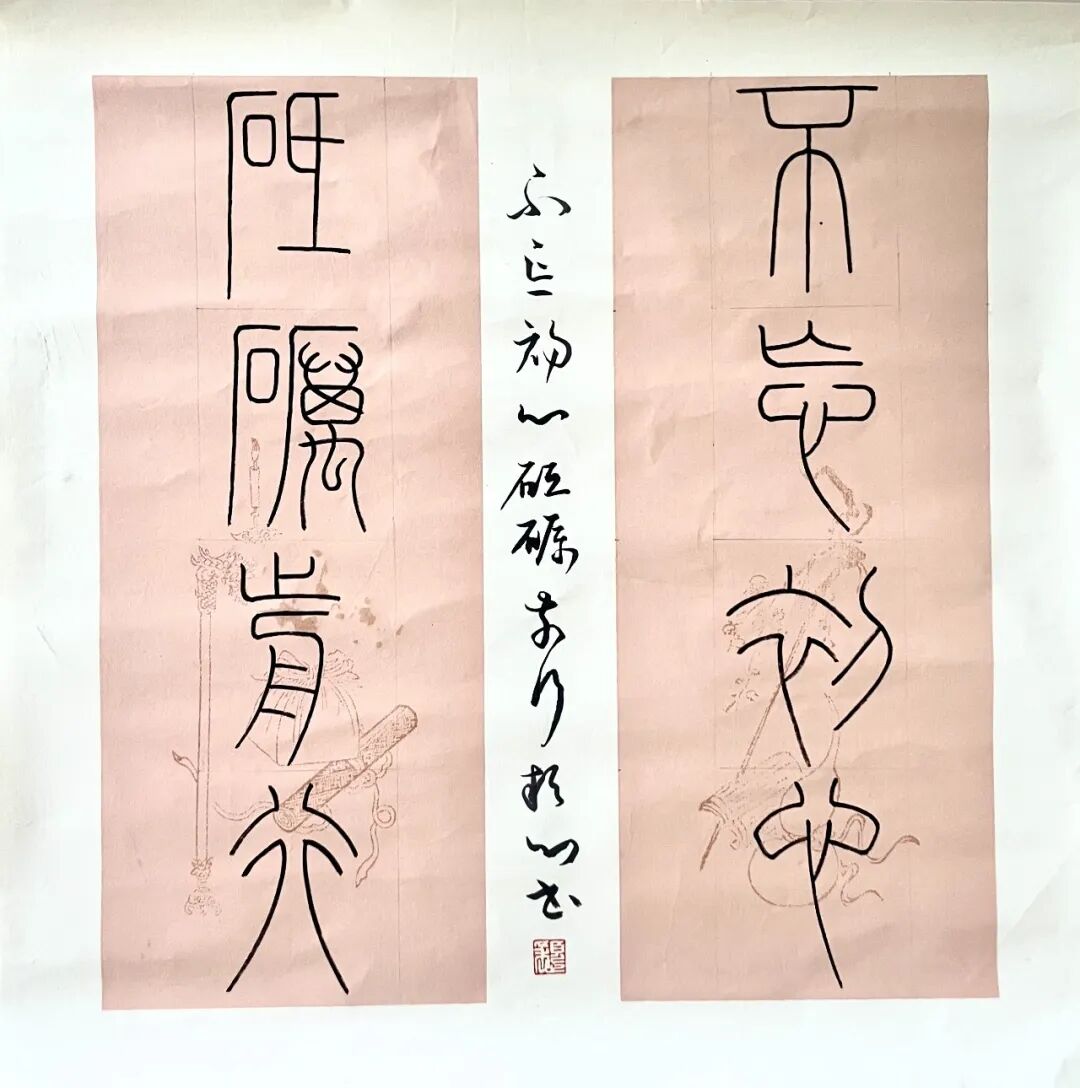 不忘初心
砥礪前行
不忘初心砥砺前行 心书